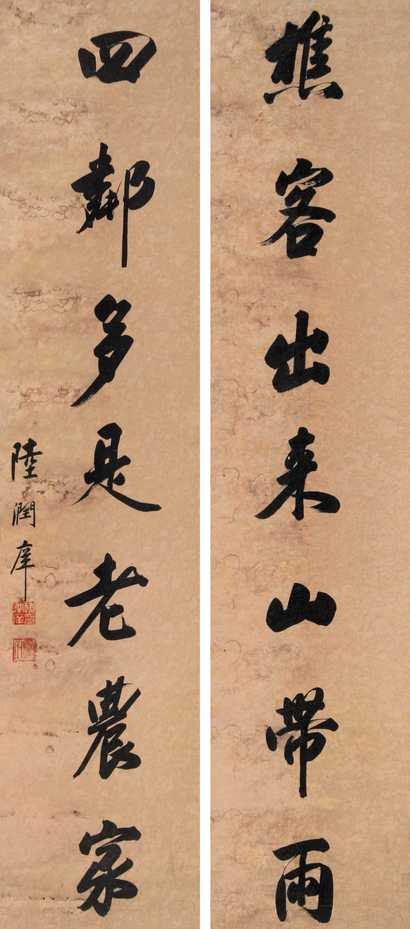 樵客出来山帶雨
四鄰多是老農家
陸潤庠